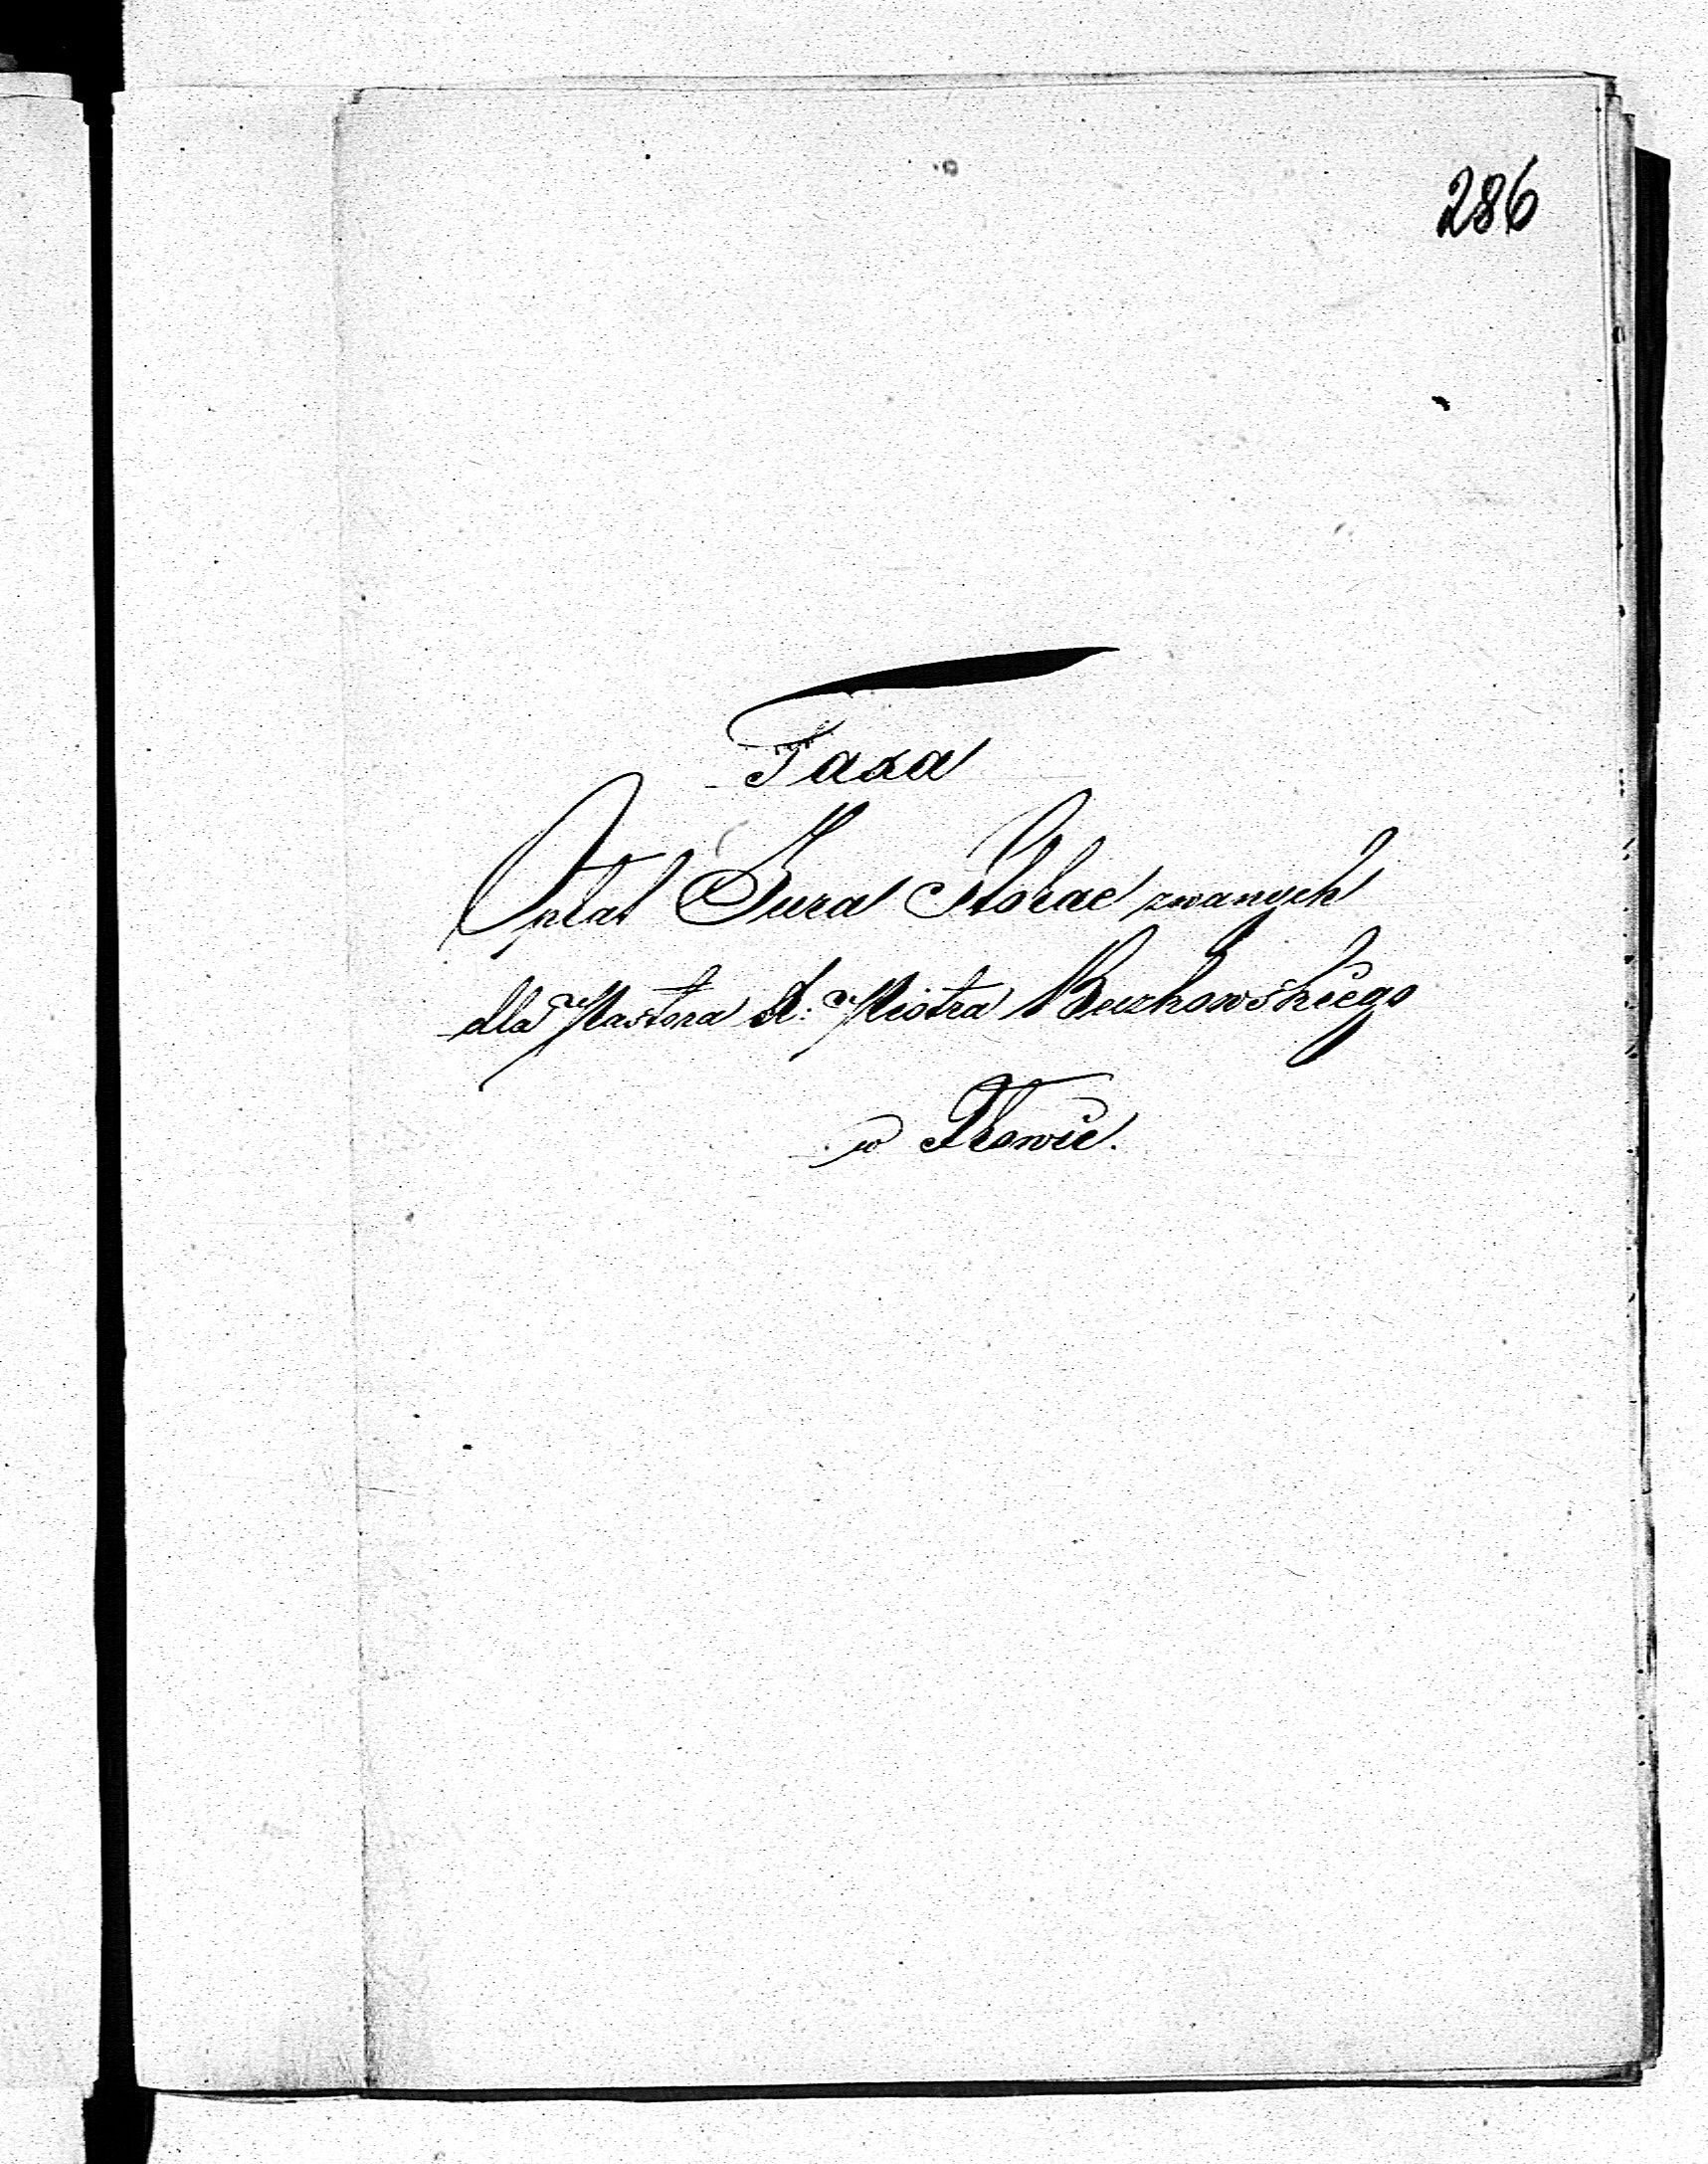 286
Taxa
Opłat Jura Stolae zwanych
dla Pastora X: Piotra Burkowskiego
w Iłowie.